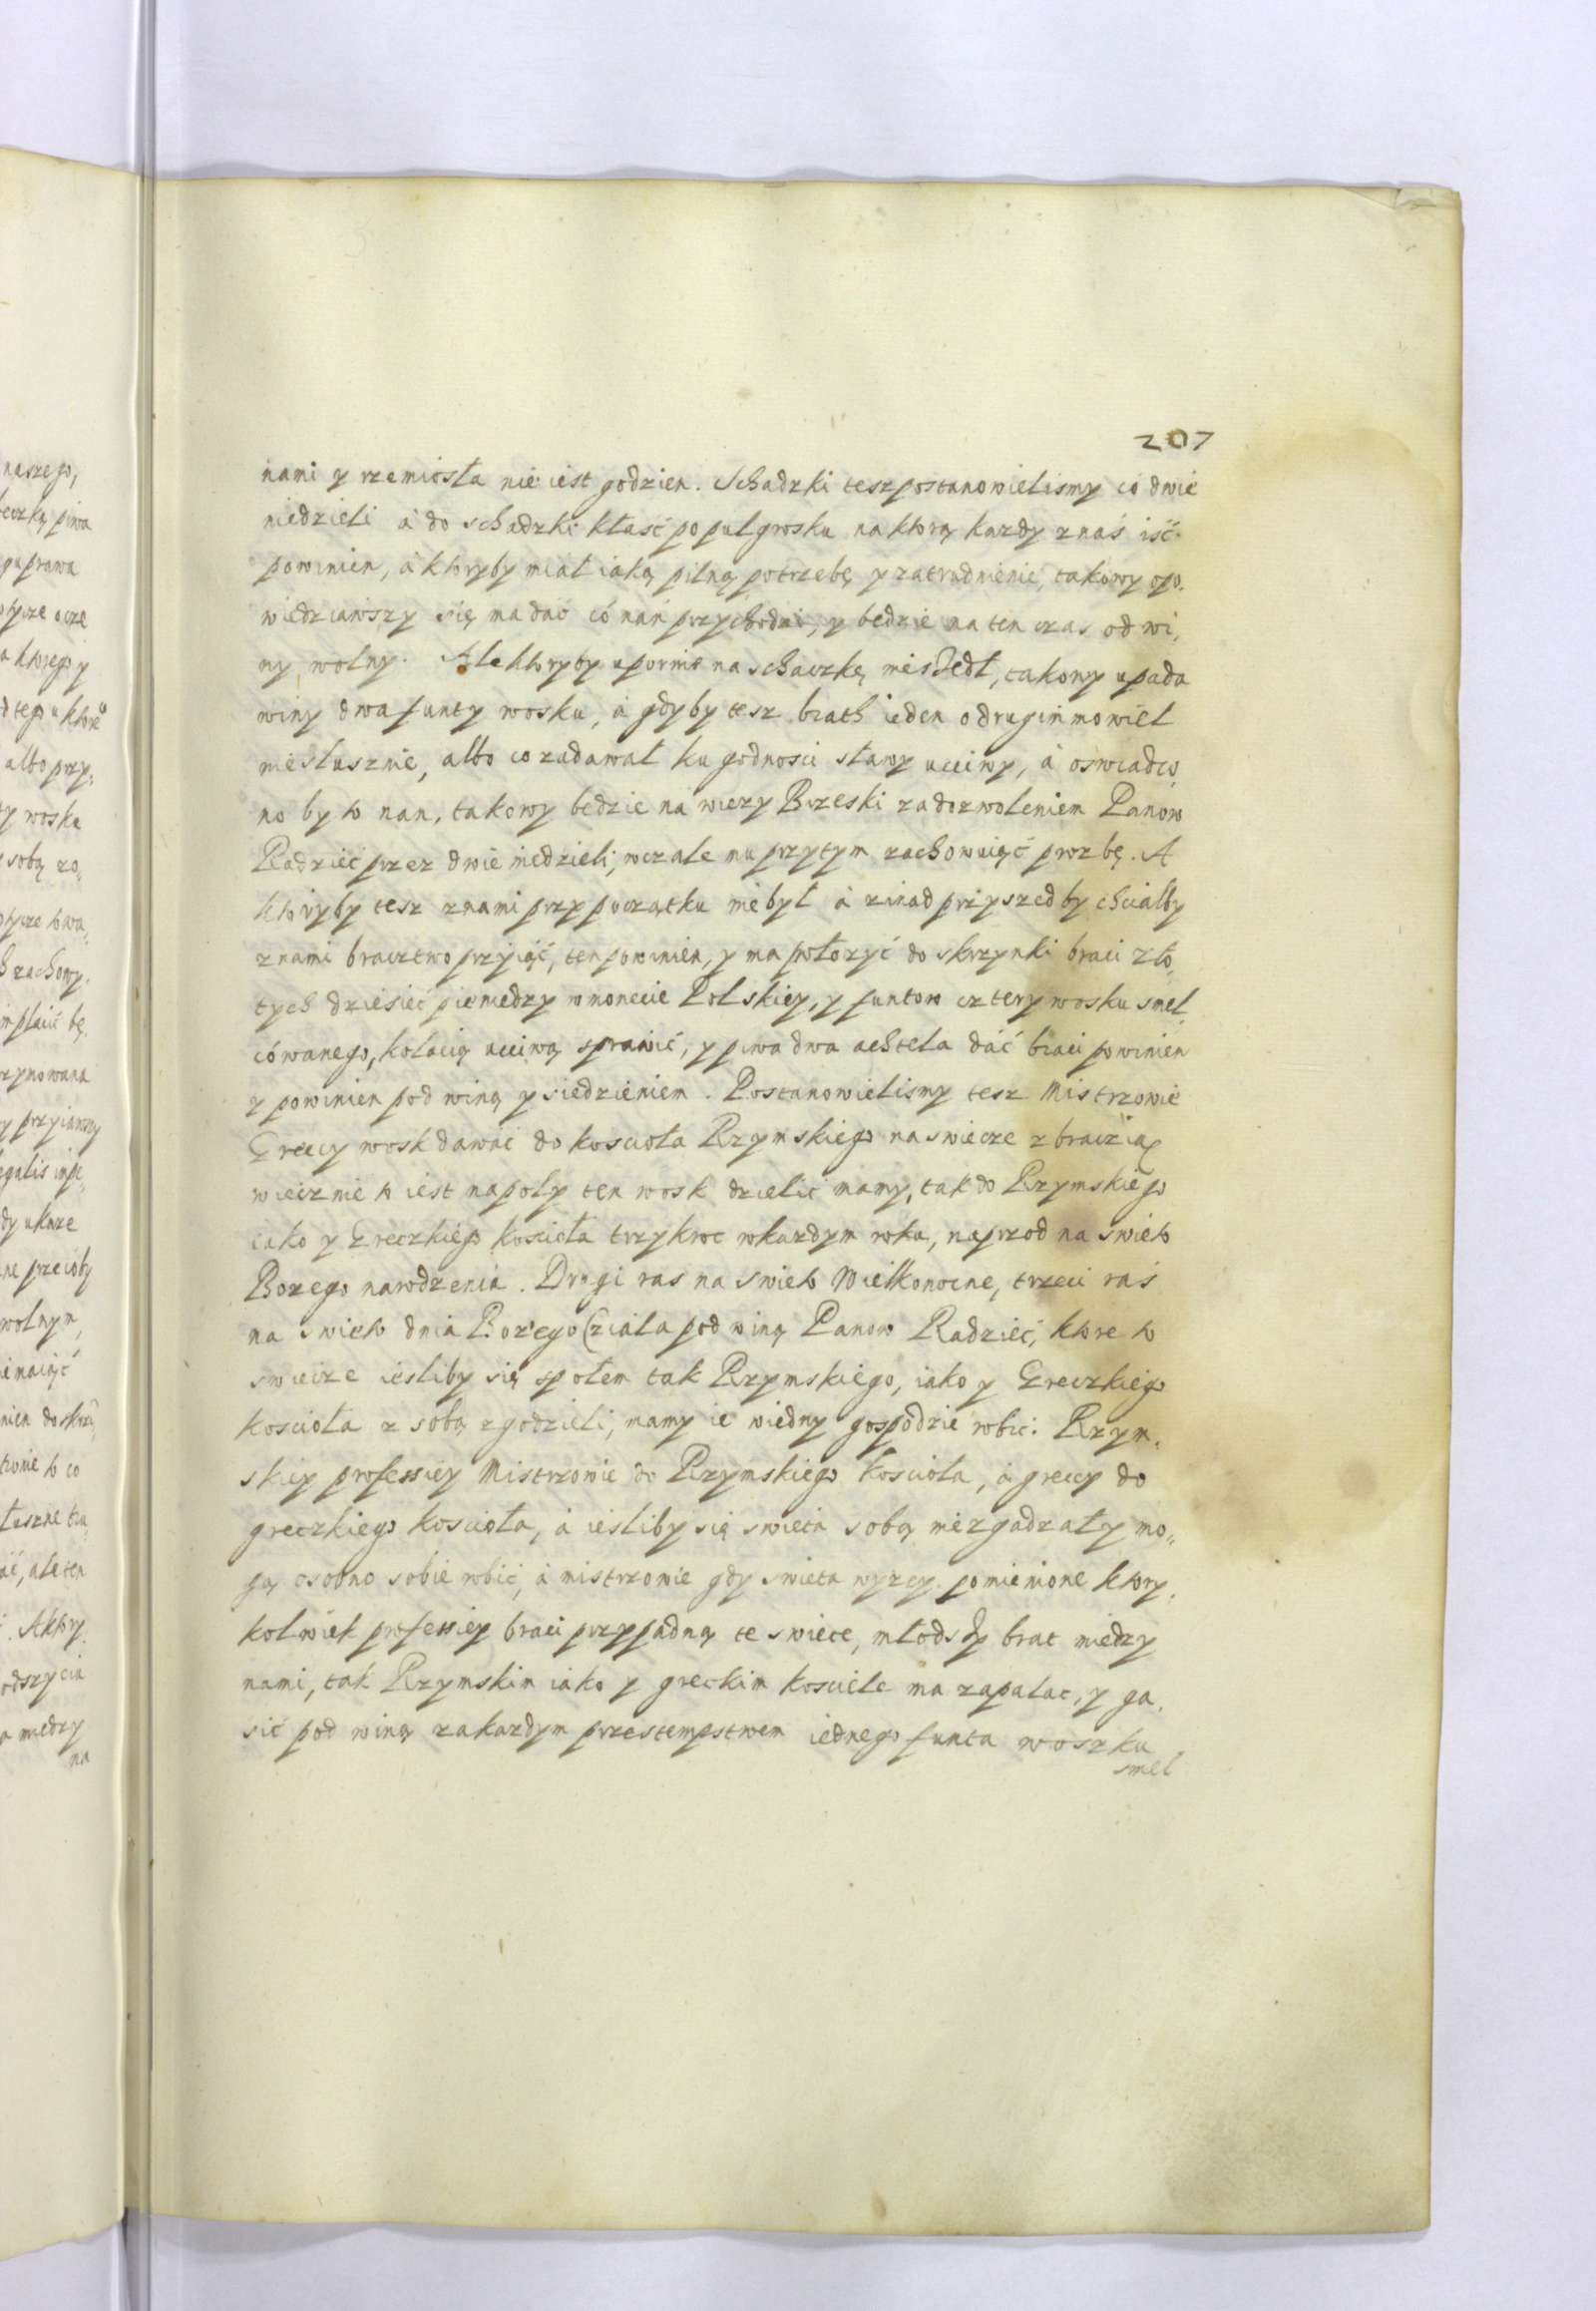 207
nami y rzemiosła nie iest godzien. Schadzki tesz postanowielismy co dwie
niedzieli á do schadzki kłaść po pulgrosku na ktorą kazdy znas iść
powinien, á ktoryby miał iaką pilną potrzebę y zatrudnienie, takowy opo.
wiedziawszy się ma dać co nań przychodzi, y bedzie na ten czas od wi,
ny wolny. Ale ktoryby upornie na schaczkę nieszedł, takowy upada
winy dwa funty wosku, á gdyby tesz brath ieden o drugim mowieł
niesłusznie, albo co zadawał ku godnosci sławy ucciwy, á oswiadcą
no by to nan, takowy bedzie na wiezy Brzeski za dozwoleniem Panow
Radziec przez dwie niedzieli, wczale mu przytym zachowuiąć prozbę. A
ktoryby tesz znami przy początku nie był á zinad przyszedby chciałby
znami bractwo przyiąć, ten powinien, y ma położyć do skrzynki braci zło,
tych dziesieć pieniedzy w monecie Polskiey, y funtow cztery wosku smel,
cówanego, kolacią ucciwą sprawić, y piwa dwa achtela dáć braci powinien
y powinien pod winą y siedzieniem. Postanowielismy tesz Mistrzowie
Greccy wosk dawać do koscioła Rzymskiego na swiecze z braczią
wiecznie to iest napoły ten wosk dzielić mamy, tak do Rzymskiego
iako y Greczkiego koscioła trzykroc w kazdym roku, naprzod na swieto
Bozego narodzenia. Drugi ras na swieto Wielkonocne, trzeci ras
na swieto dnia Bozego Cziala pod winą Panow Radziec, ktore to
swiecze iesliby się społem tak Rzymskiego, iako y Greczkiego
koscioła z sobą zgodzieli, mamy ie wiedny gospodzie robic. Rzym,
skiey professiey Mistrzowie do Rzymskiego koscioła, á greccy do
greczkiego koscioła, á iesliby się swieta sobą niezgadzały mo,,
gą osobno sobie robić, á mistrzowie gdy swieta wyzey pomienione ktory,
kolwiek professiey braci przypadną te swiece, młodszy brat miedzy
nami, tak Rzymskim iako y greckim kosciele ma zapalac, y ga,
sić pod winą za kazdym przestempstwem iednego funta woszku
smel